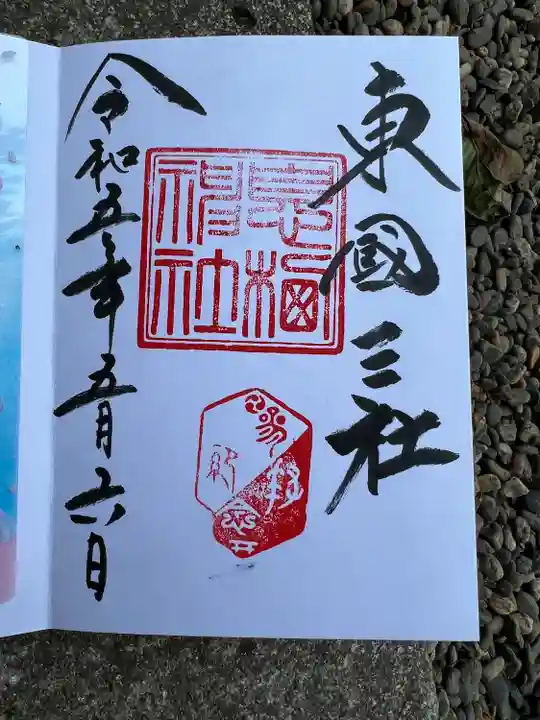 東國三社
息栖
神社
令和五年五月六日